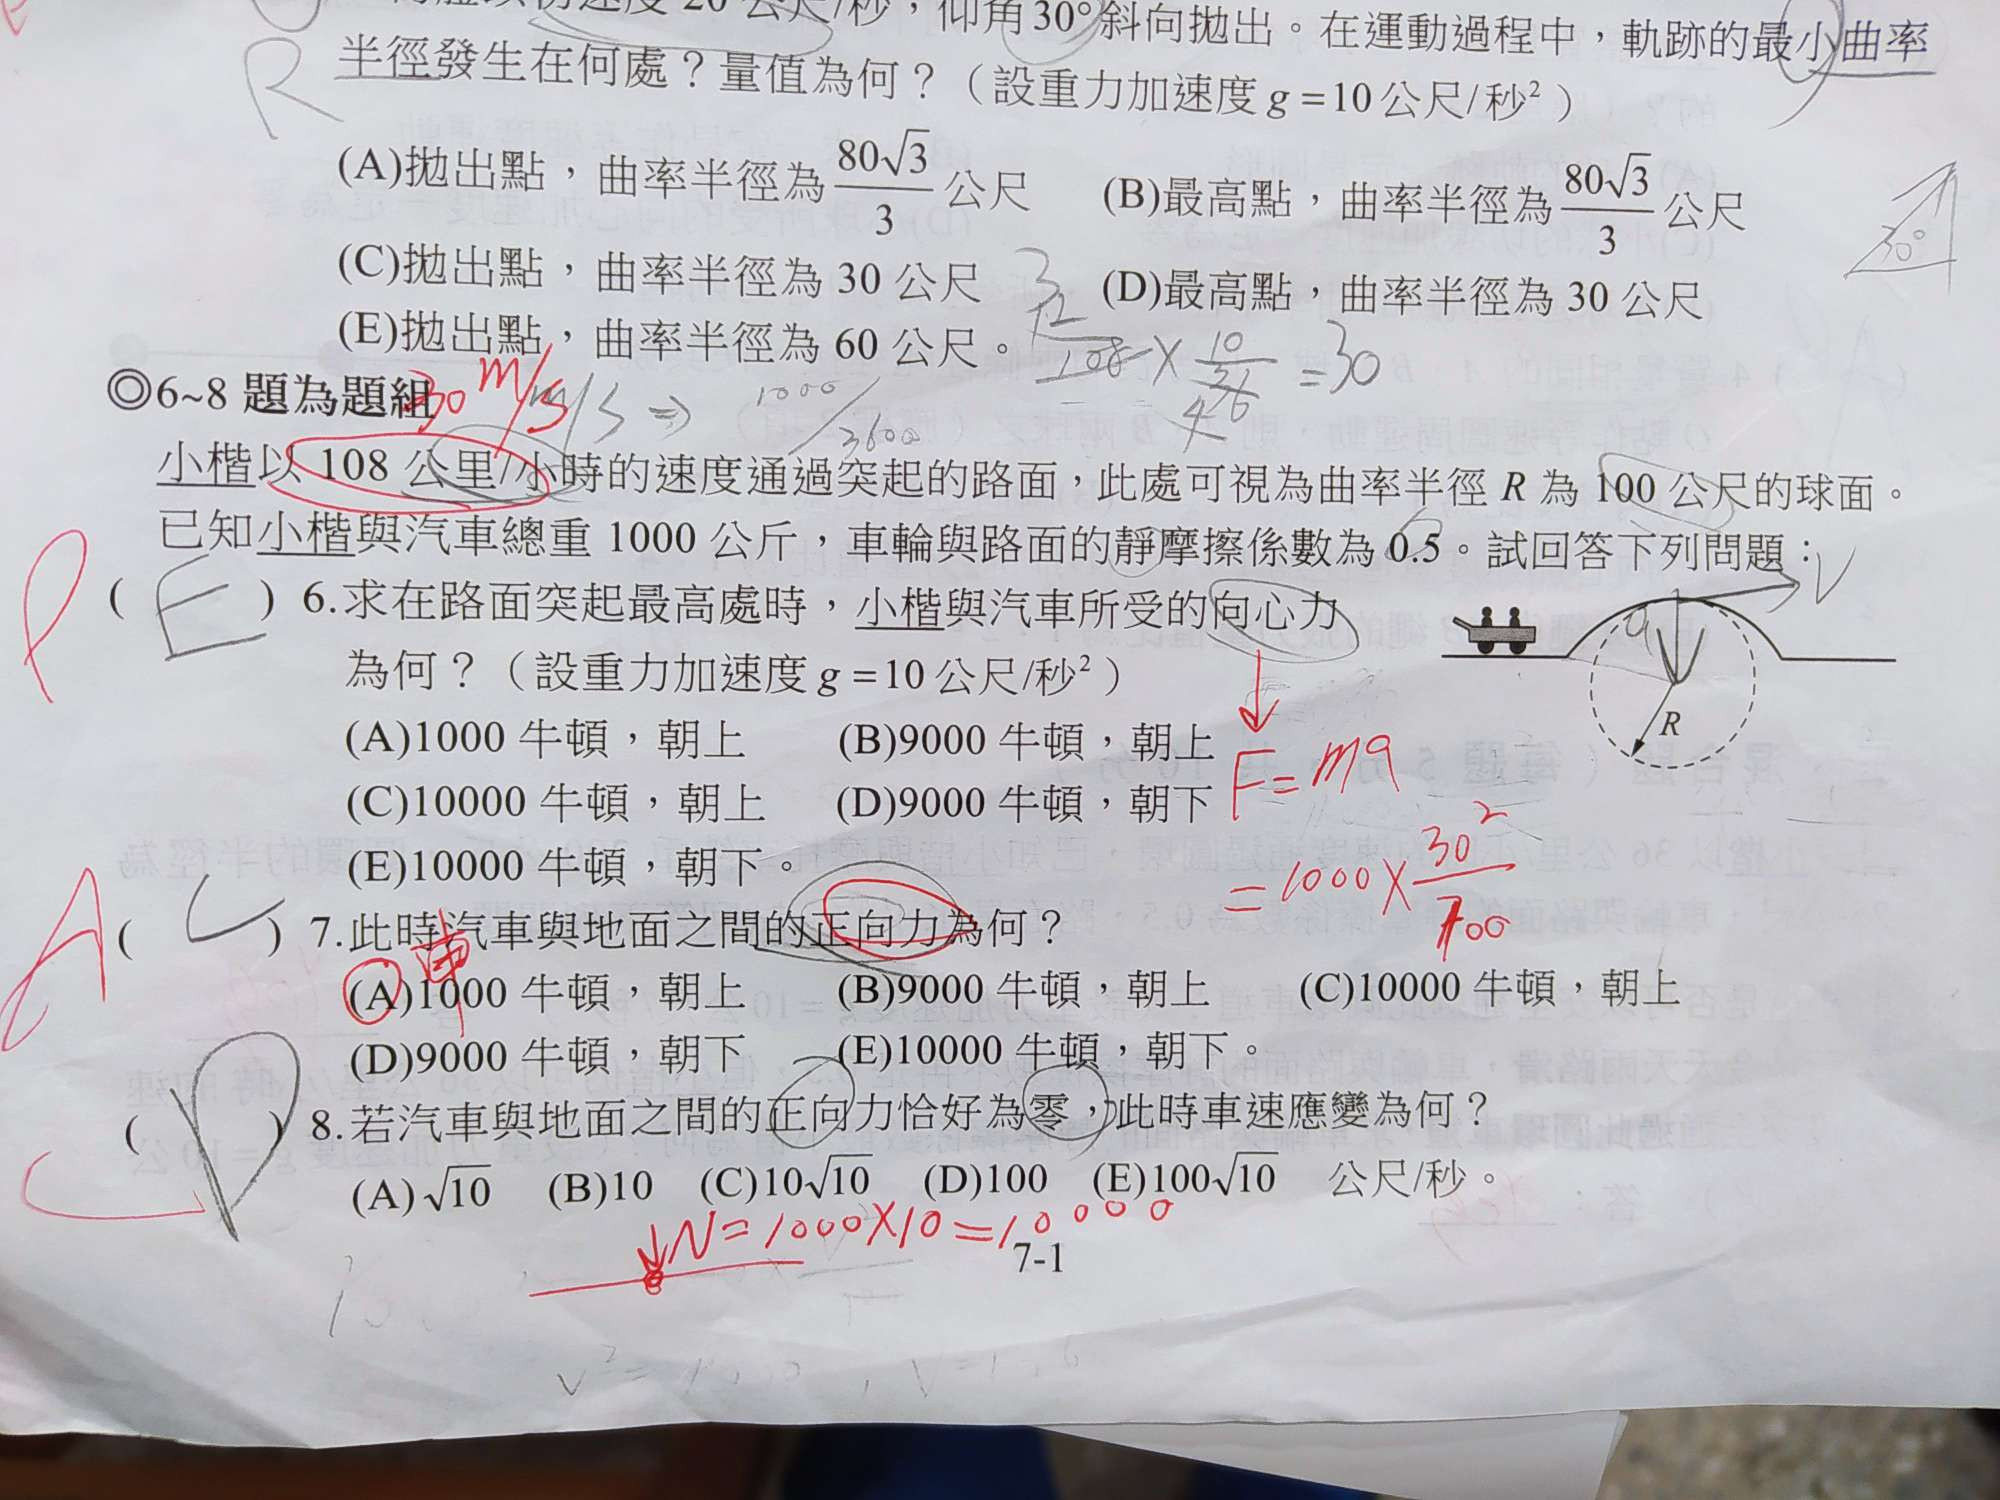 20 公尺/秒，仰角30°斜向拋出。在運動過程中，軌跡的最小曲率
R 半徑發生在何處？量值為何？（設重力加速度 g =10公尺/秒²）
(A)拋出點，曲率半徑為 80√3/3 公尺 (B)最高點，曲率半徑為 80√3/3 公尺
30°
(C)拋出點，曲率半徑為 30 公尺 (D)最高點，曲率半徑為 30 公尺
(E)拋出點，曲率半徑為 60 公尺。
3
12
108 × 10/36 = 30
4
◎6~8 題為題組
30 m/s
m/s ⇒ 1000/3600
小楷以 108 公里/小時的速度通過突起的路面，此處可視為曲率半徑 R 為 100 公尺的球面。
已知小楷與汽車總重 1000 公斤，車輪與路面的靜摩擦係數為 0.5。試回答下列問題：
V
a
R
( E ) 6.求在路面突起最高處時，小楷與汽車所受的向心力
為何？（設重力加速度 g =10公尺/秒²）
(A)1000 牛頓，朝上 (B)9000 牛頓，朝上
(C)10000 牛頓，朝上 (D)9000 牛頓，朝下
(E)10000 牛頓，朝下。
F=ma
=1000× 30²/100
A ( C ) 7.此時汽車與地面之間的正向力為何？
(A)1000 牛頓，朝上 (B)9000 牛頓，朝上 (C)10000 牛頓，朝上
(D)9000 牛頓，朝下 (E)10000 牛頓，朝下。
C ( D ) 8.若汽車與地面之間的正向力恰好為零，此時車速應變為何？
(A)√10 (B)10 (C)10√10 (D)100 (E)100√10 公尺/秒。
N=1000×10=10000
7-1